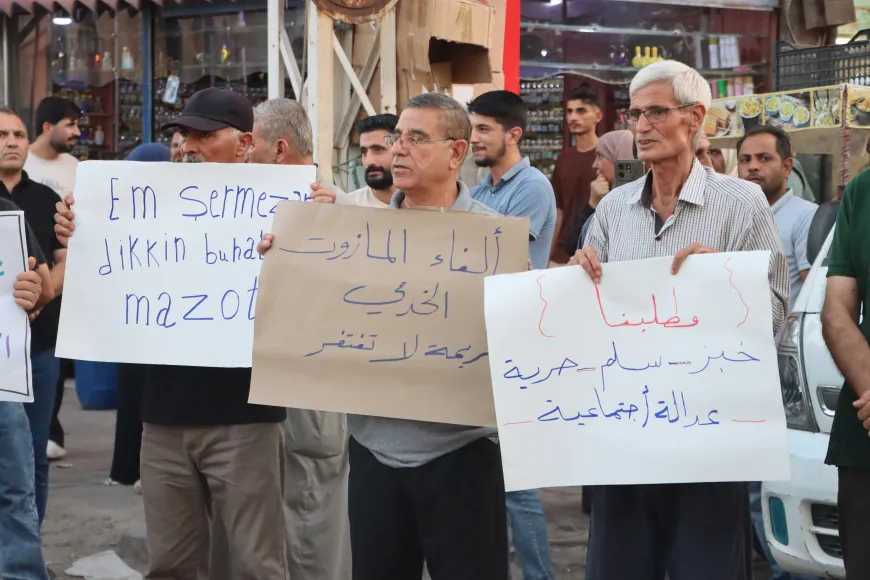 Em Şermeza
dikkin buhat
mazot
ألغاء المازوت
الخدئي
ريمة لا تغتفر
{ مطلبنا }
خبز - سلم - حرية
- عدالة أجتماعية -